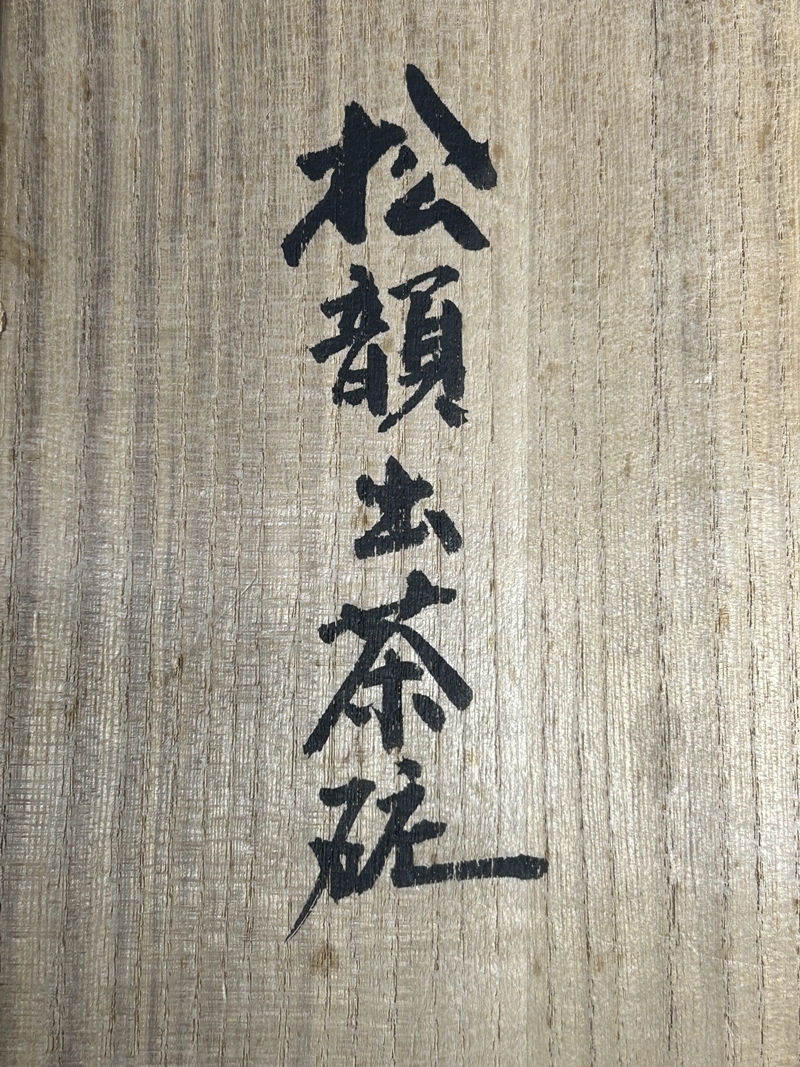 松韻出茶碗